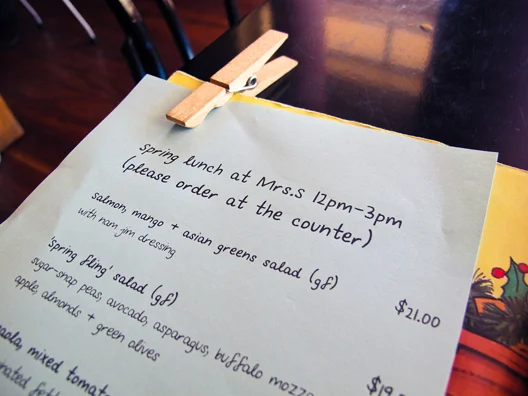 spring lunch at Mrs.S 12pm-3pm
(please order at the counter)
salmon, mango + asian greens salad (gf)
with nam jim dressing
$21.00
'spring fling' salad (gf)
sugar-snap peas, avocado, asparagus, buffalo
apple, almonds + green olives
mixed